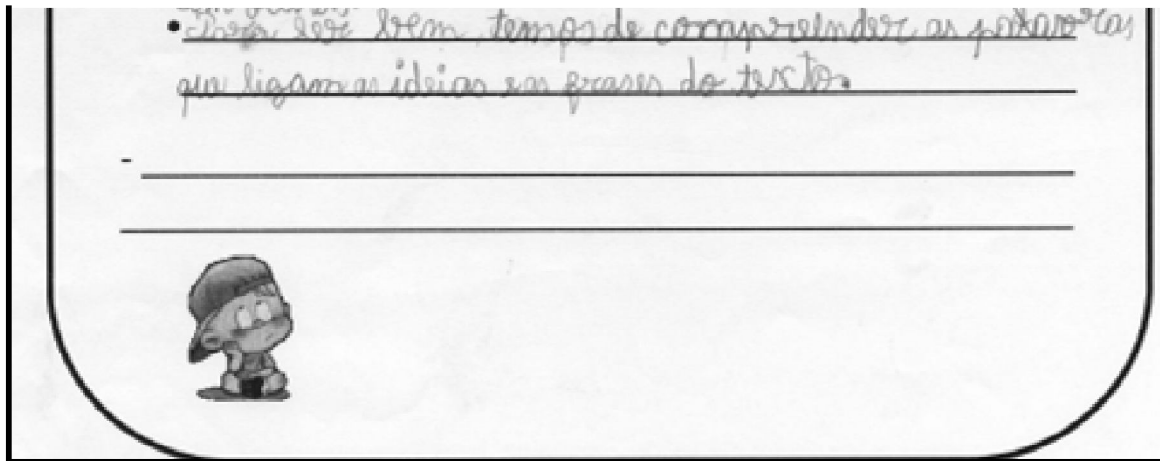 • Para ler bem, temos de compreender as palavras
que ligam as ideias e as frases do texto.
-